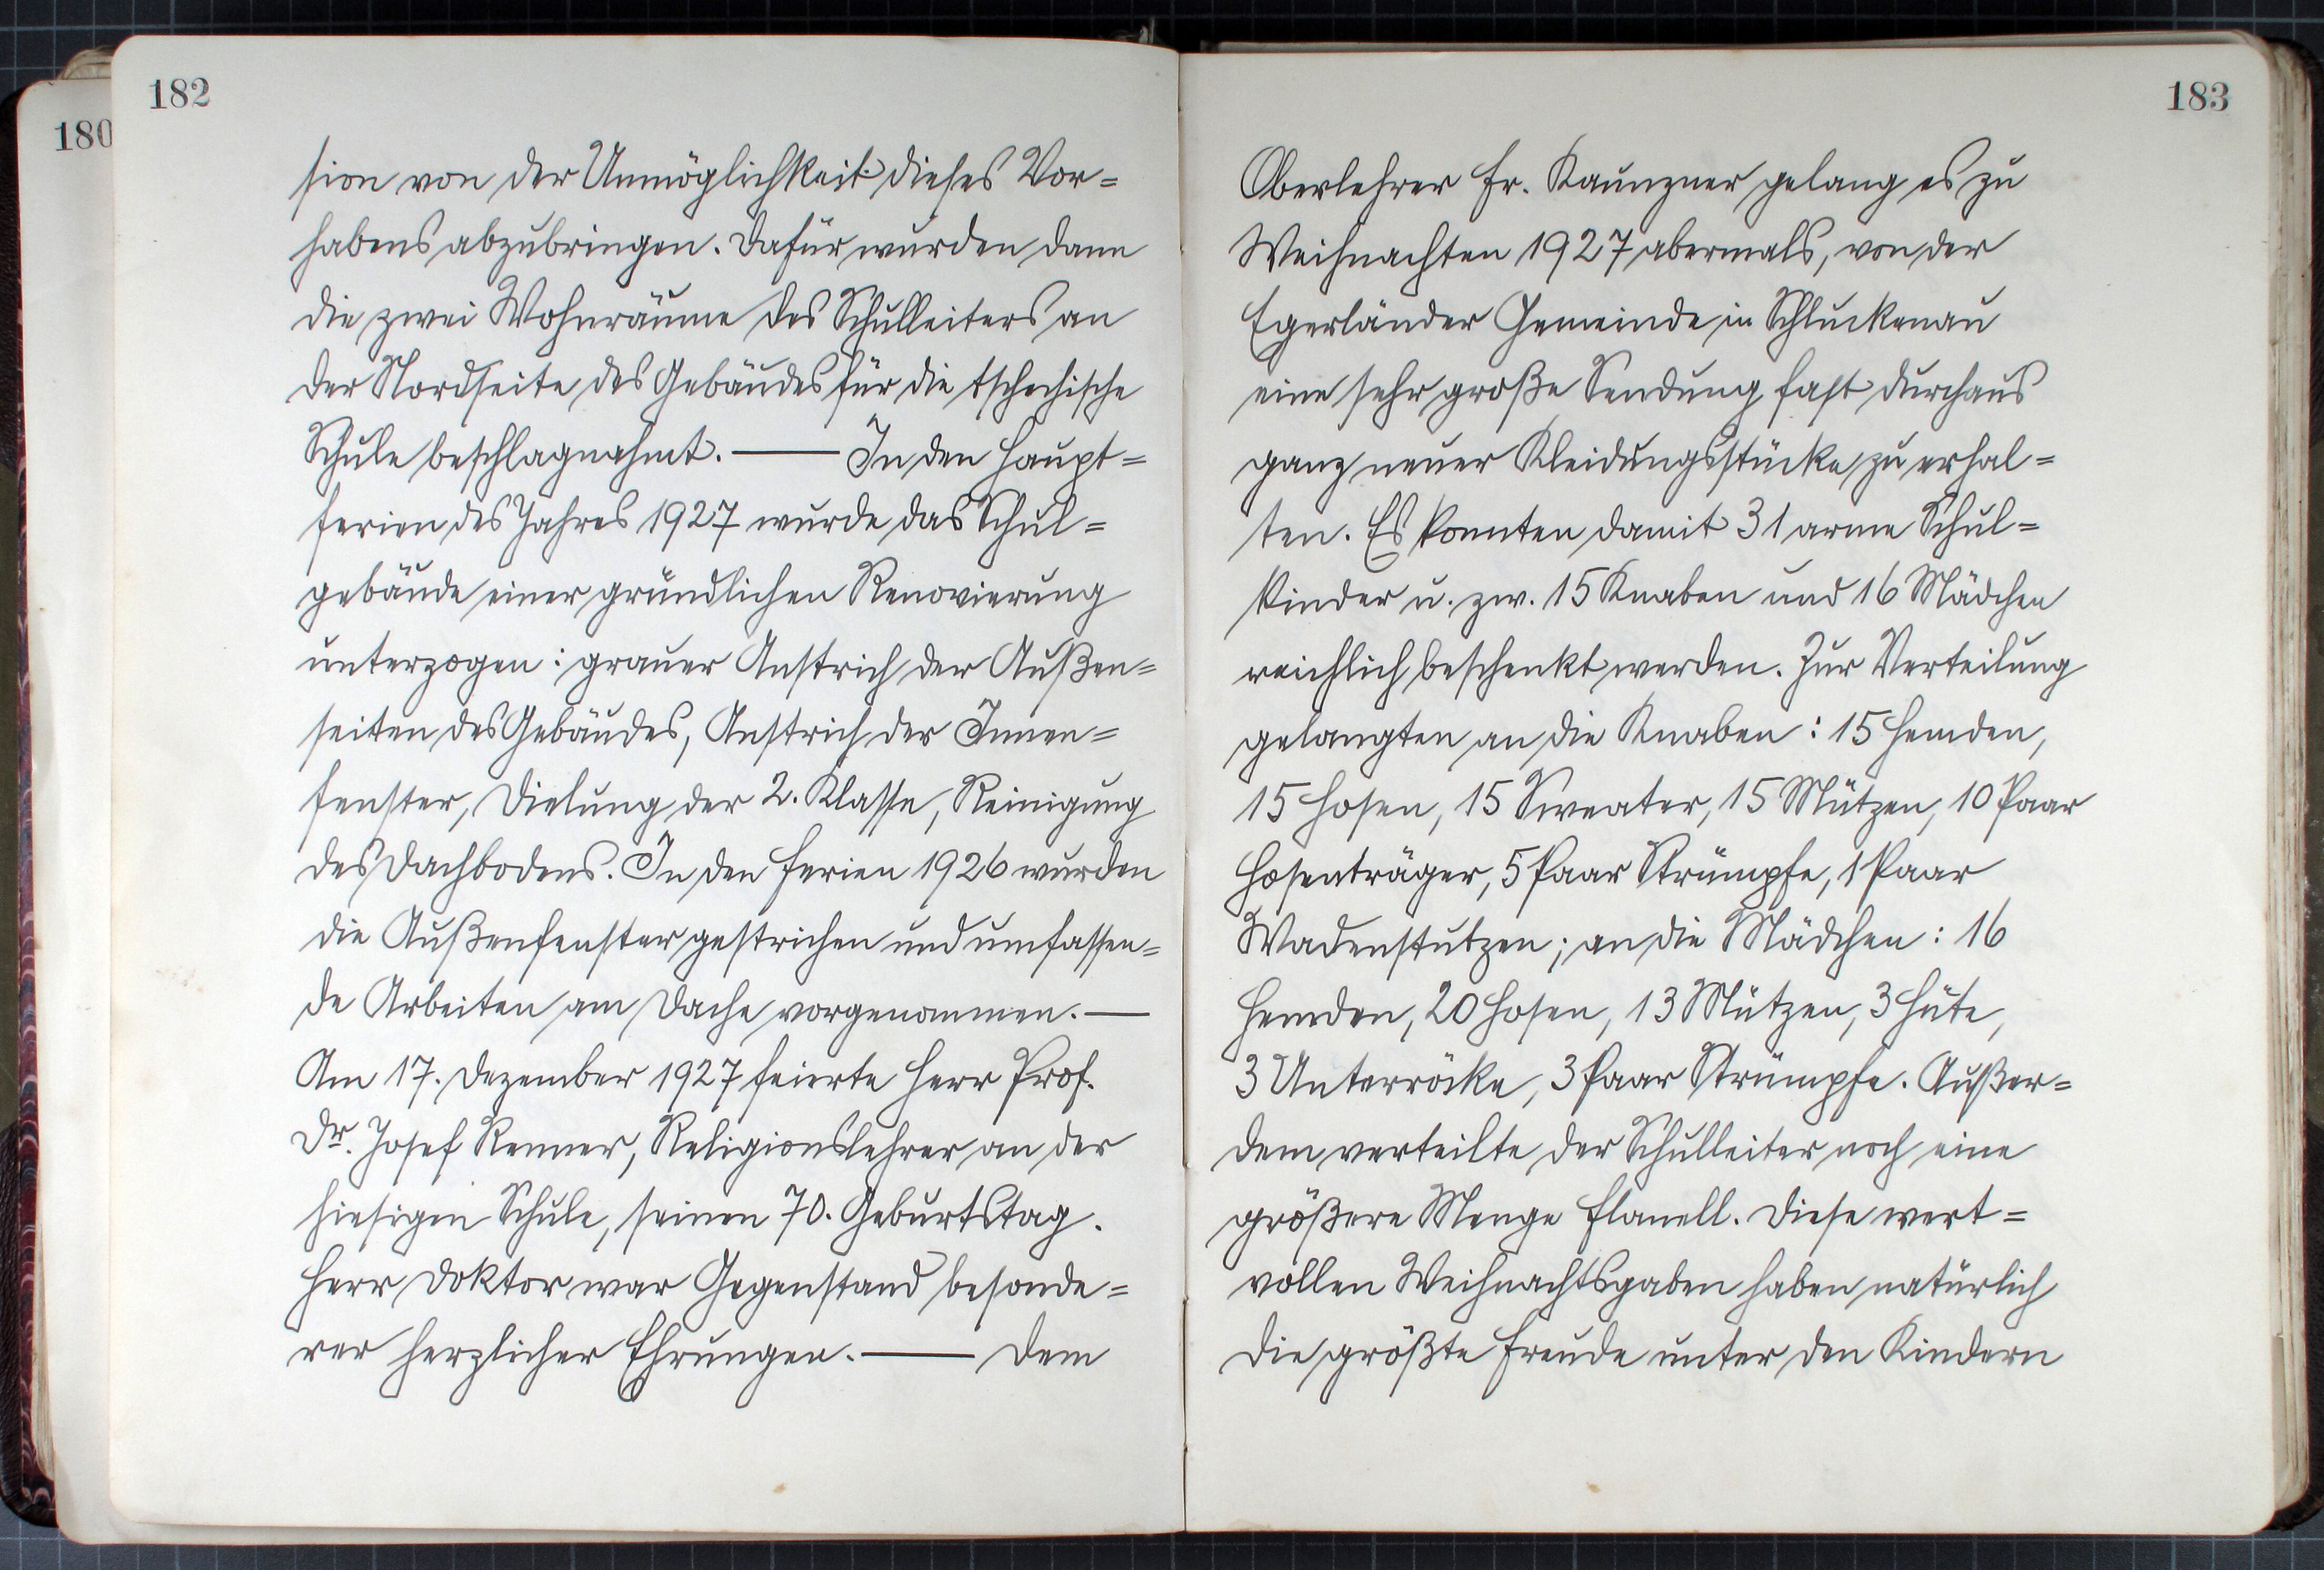 182
180
sion von der Unmöglichkeit dieses Vor=
habens abzubringen. Dafür wurden dann
die zwei Wohnräume des Schulleiters an
der Nordseite des Gebäudes für die tschechische
Schule beschlagnahmt. — In den Haupt=
ferien des Jahres 1927 wurde das Schul=
gebäude einer gründlichen Renovierung
unterzogen: grauer Anstrich der Außen=
seiten des Gebäudes, Anstrich der Innen=
fenster, Dielung der 2. Klasse, Reinigung
des Dachbodens. In den Ferien 1926 wurden
die Außenfenster gestrichen und umfassen=
de Arbeiten am Dache vorgenommen. —
Am 17. Dezember 1927 feierte Herr Prof.
Dr. Josef Renner, Religionslehrer an der
hiesigen Schule, seinen 70. Geburtstag.
Herr Doktor war Gegenstand besonde=
rer herzlicher Ehrungen. — Dem
183
Oberlehrer Fr. Kaunzner gelang es zu
Weihnachten 1927 abermals, von der
Egerländer Gemeinde in Schluckenau
eine sehr große Sendung fast durchaus
ganz neuer Kleidungsstücke zu erhal=
ten. Es konnten damit 31 arme Schul=
kinder u. zw. 15 Knaben und 16 Mädchen
reichlich beschenkt werden. Zur Verteilung
gelangten an die Knaben: 15 Hemden,
15 Hosen, 15 Sweater, 15 Mützen, 10 Paar
Hosenträger, 5 Paar Strümpfe, 1 Paar
Wadenstutzen; an die Mädchen: 16
Hemden, 20 Hosen, 13 Mützen, 3 Hüte,
3 Unterröcke, 3 Paar Strümpfe. Außer=
dem verteilte der Schulleiter noch eine
größere Menge Flanell. Diese wert=
vollen Weihnachtsgaben haben natürlich
die größte Freude unter den Kindern